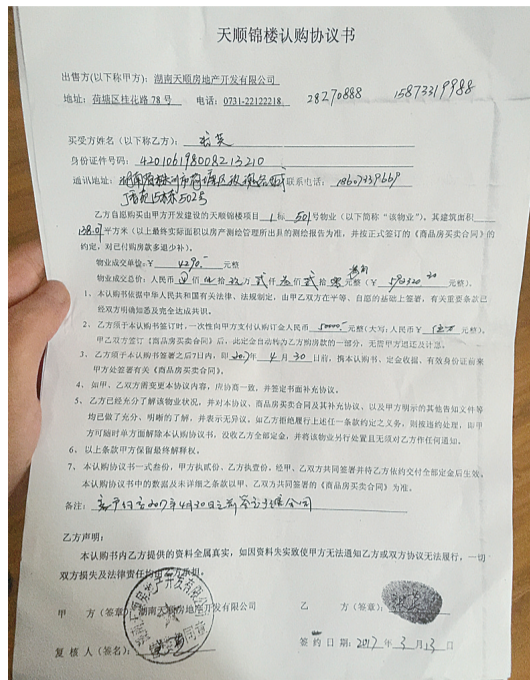 天顺锦楼认购协议书
出售方(以下称甲方): 湖南天顺房地产开发有限公司
地址: 荷塘区桂花路78号 电话: 0731-22122218 28270888 15873319988
买受方姓名(以下称乙方):
身份证件号码: 420106198008213210
通讯地址: 湖南省株洲市荷塘区 联系电话:
15栋502号
乙方自愿购买由甲方开发建设的天顺锦楼项目 1 栋 501号物业(以下简称“该物业”)。其建筑面积
138.01平方米(以上最终实际面积以房产测绘管理所出具的测绘报告为准,并按正式签订的《商品房买卖合同》的
约定,对已付购房款多退少补)。
物业成交单价:¥ 4290.- 元整
物业成交总价:人民币 伍佰 拾 万 仟 佰 拾 元整(¥ 元整)。
1、本认购书依据中华人民共和国有关法律、法规制定,由甲乙双方在平等、自愿的基础上签署,有关重要条款已
经双方明确知悉及完全达成共识。
2、乙方须于本认购书签订时,一次性向甲方支付认购订金人民币 50000.- 元整(大写:人民币¥ 元整)。
甲乙双方签订《商品房买卖合同》后,此定金自动转为乙方购房款的一部分,无需甲方退还及计息。
3、乙方须于本认购书签署之后7日内,即 2017年 4 月 30 日前,携本认购书、定金收据、有效身份证前来
甲方处签署有关《商品房买卖合同》。
4、如甲、乙双方需变更本协议内容,应协商一致,并签定书面补充协议。
5、乙方已经充分了解该物业状况,并对本协议、商品房买卖合同及其补充协议、以及甲方明示的其他告知文件等
均已做了充分、明晰的了解,并表示无异议。如乙方拒绝履行上述任一条款约定之义务,则按违约处理,即甲
方可随时单方面解除本认购协议书,没收乙方全部定金,并将该物业另行处置且无须对乙方作任何通知。
6、以上条款甲方保留最终解释权。
7、本认购协议书一式叁份,甲方执贰份、乙方执壹份,经甲、乙双方共同签署并待乙方依约交付全部定金后生效。
本认购协议书中的数据及未详细之条款以甲、乙双方共同签署的《商品房买卖合同》为准。
备注: 2017年4月30日之前 公司
乙方声明:
本认购书内乙方提供的资料全属真实,如因资料失实致使甲方无法通知乙方或双方协议无法履行,一切
双方损失及法律责任均由乙方承担。
甲 方(签章): 湖南天顺房地产开发有限公司 乙 方(签章):
复 核 人(签名): 签 约 日 期: 2017 年 3 月 13 日